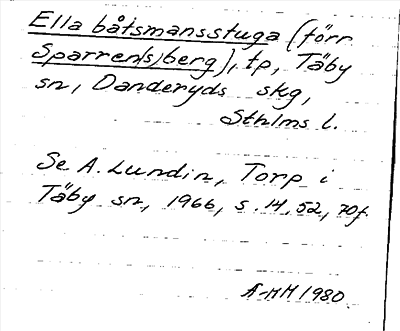 Ella båtsmansstuga (förr
Sparren(s)berg), tp, Täby
sn, Danderyds skg,
Sthlms l.
Se A. Lundin, Torp i
Täby sn, 1966, s. 14, 52, 70f.
Å-MH 1980